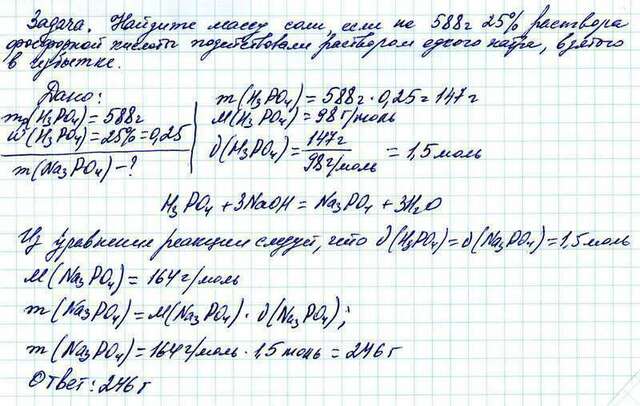 Задача. Найдите массу соли, если на 588г 25% раствора
фосфорной кислоты подействовали раствором едкого натра, взятого
в избытке.
Дано:
m(H₃PO₄) = 588г
ω(H₃PO₄) = 25% = 0,25
m(Na₃PO₄) - ?
m(H₃PO₄) = 588г · 0,25 = 147г
M(H₃PO₄) = 98г/моль
ν(H₃PO₄) = 147г / 98г/моль = 1,5 моль
H₃PO₄ + 3NaOH = Na₃PO₄ + 3H₂O
Из уравнения реакции следует, что ν(H₃PO₄) = ν(Na₃PO₄) = 1,5 моль
M(Na₃PO₄) = 164г/моль
m(Na₃PO₄) = M(Na₃PO₄) · ν(Na₃PO₄);
m(Na₃PO₄) = 164г/моль · 1,5 моль = 246г
Ответ: 246г